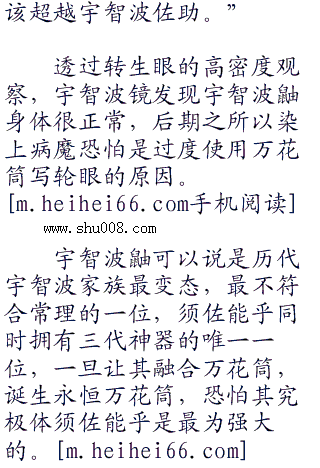 该超越宇智波佐助。”
透过转生眼的高密度观
察，宇智波镜发现宇智波鼬
身体很正常，后期之所以染
上病魔恐怕是过度使用万花
筒写轮眼的原因。
[m.heihei66.com手机阅读]
www.shu008.com
宇智波鼬可以说是历代
宇智波家族最变态，最不符
合常理的一位，须佐能乎同
时拥有三代神器的唯一一
位，一旦让其融合万花筒，
诞生永恒万花筒，恐怕其究
极体须佐能乎是最为强大
的。[m.heihei66.com]